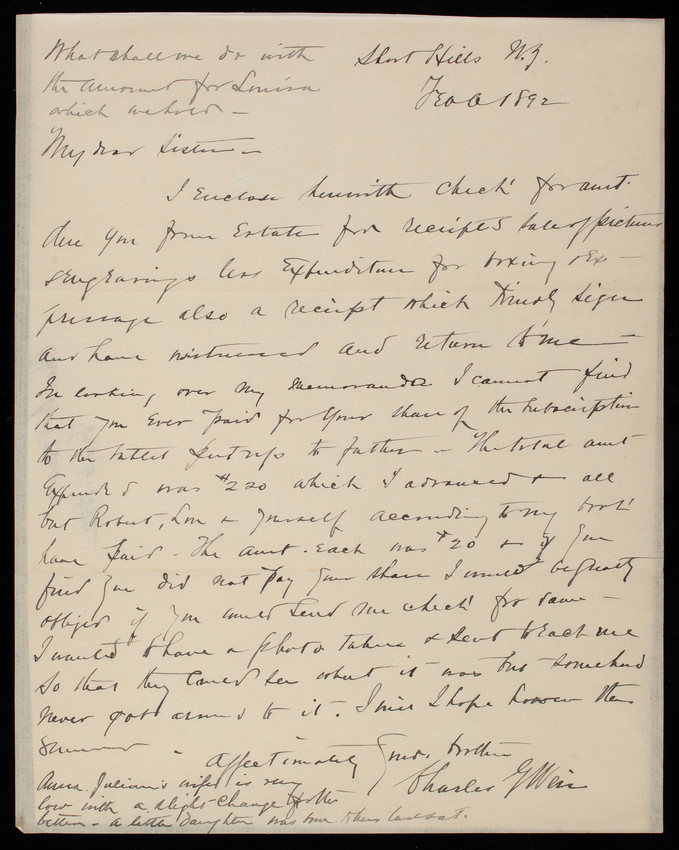 What shall we do with
the amount for Louisa
which we hold -
Short Hills N.J.
Feb 6 1892
My dear Sister -
I Enclose herewith check for amt.
due you from Estate for receipts sale of pictures
& engravings less Expenditure for boxing & Ex-
pressage also a receipt which kindly sign
and have witnessed and return to me -
In looking over my memoranda I cannot find
that you Ever paid for your share of the Subscription
to the tablet put up to father - The total amt
Expended was $220 which I advanced & all
but Robert, Lou & yourself according to my book
have paid. The amt. Each was $20 & if you
find you did not pay your share I would be greatly
obliged if you would send me check for same -
I wanted to have a photo taken & sent to Each one
so that they could see what it was but somehow
never got around to it. I will I hope however this
Summer -
Affectionately Your brother
Charles G Weir
Anna Julian's wife is very
low with a slight change for the
better - a little daughter was born last Sat.